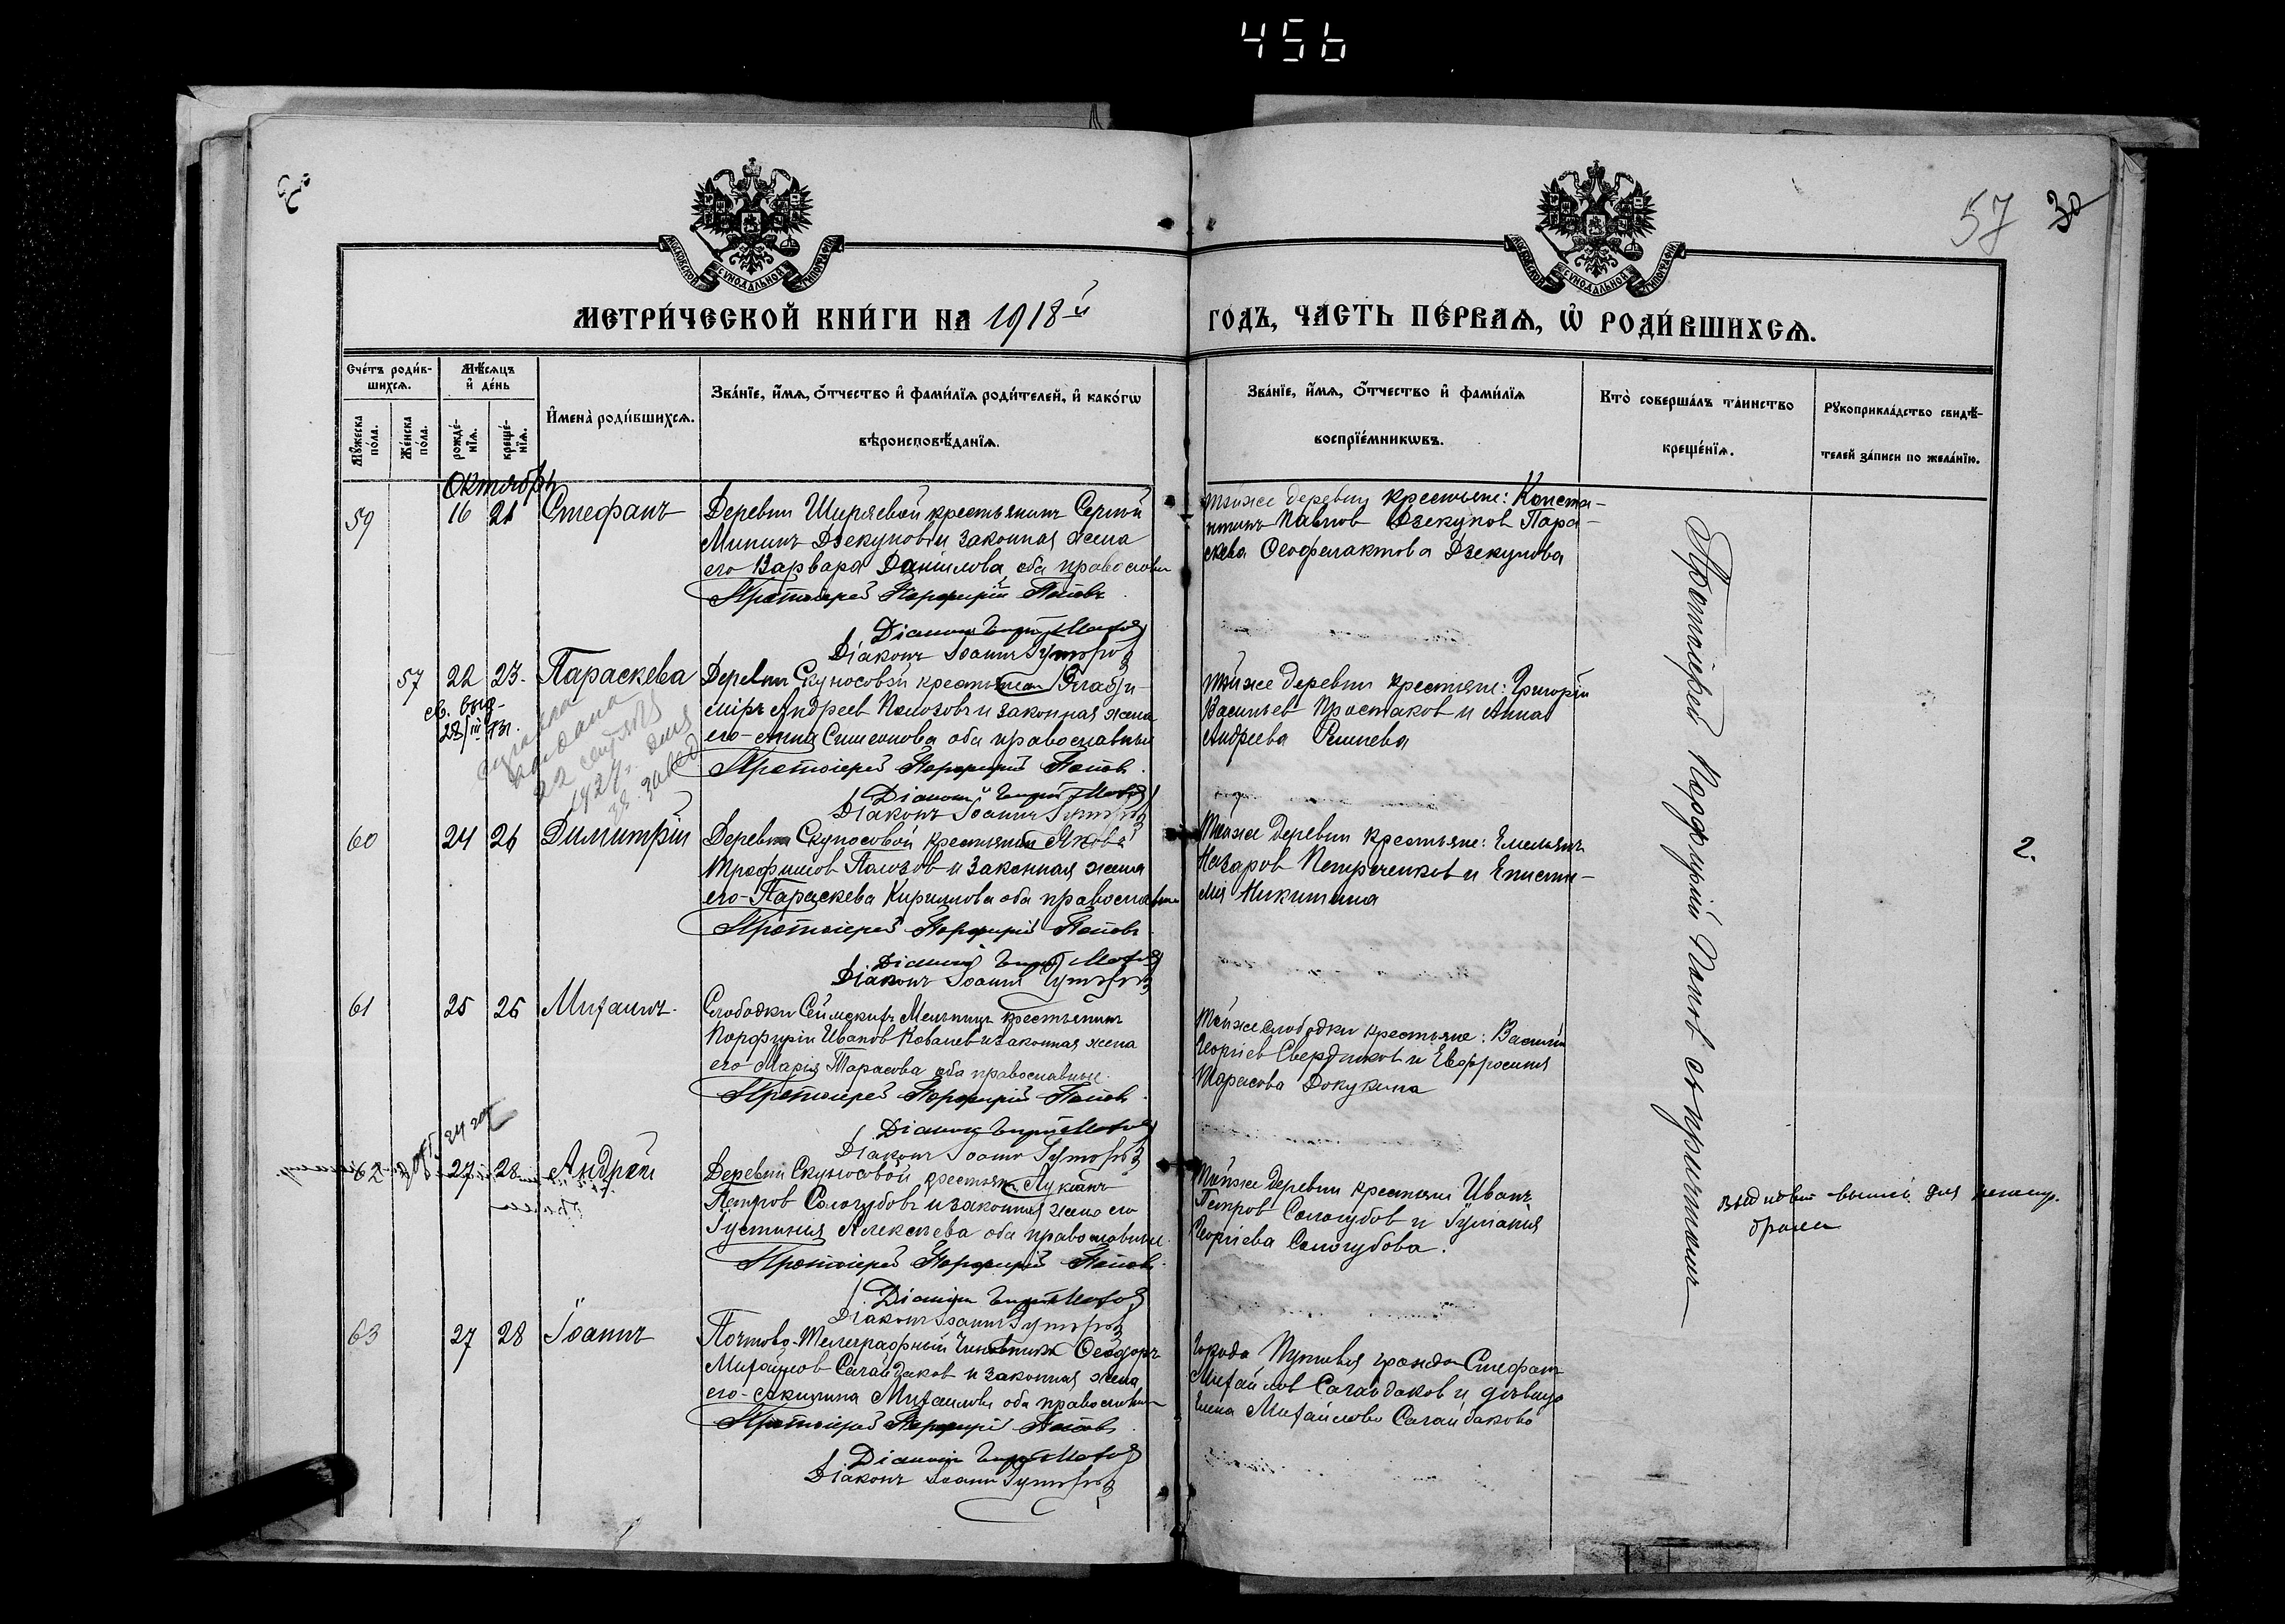 456
57 30
МОСКОВСКОЙ СУНОДАЛЬНОЙ ТИПОГРАФІИ
МОСКОВСКОЙ СУНОДАЛЬНОЙ ТИПОГРАФІИ
МЕТРИ́ЧЕСКОЙ КНИ́ГИ НА 1918й
ГОДЪ, ЧАСТЬ ПЕ́РВАѦ, Ѡ҆ РОДИ́ВШИХСѦ.
Сче́тъ роди́в-
шихсѧ.
Мꙋ́жеска
по́ла.
Же́нска
по́ла.
Мѣ́сѧцъ
и҆ де́нь
рожде́-
нїѧ.
креще́-
нїѧ.
И҆мена̀ роди́вшихсѧ.
Зва́нїе, и҆́мѧ, о҆́тчество и҆ фами́лїѧ роди́телей, и҆ како́гѡ
вѣроисповѣ́данїѧ.
Зва́нїе, и҆́мѧ, о҆́тчество и҆ фами́лїѧ
воспрїе́мникѡвъ.
Кто̀ соверша́лъ та́инство
креще́нїѧ.
Рꙋкоприкла́дство свидѣ́-
телей за́писи по жела́нїю.
Октябрь
59 16 21 Стефанъ
Деревни Ширяевой крестьянинъ Сергѣй
Мининъ Дзекуновъ и законная жена
его Варвара Данилова оба православн
Протоіерей Порфирій Поповъ
Діаконъ Іоаннъ
тойже деревни крестьяне: Конста-
нтинъ Павлов Дзекунов Пара-
скева Феофилактова Дзекунова
57 22 23 Параскева
св. выд-
28/III 31.
22
1927г.
Деревни Скуносовой крестьянин Влади-
міръ Андреев Полозовъ и законная жена
его Анна Симеонова оба православные
Протоіерей Порфирій Поповъ
Діаконъ Іоаннъ
тойже деревни крестьяне: Григорій
Васильев Простаков и Анна
Андреева
60 24 26 Димитрій
Деревни Скуносовой крестьянин Яковъ
Трофимов Полозов и законная жена
его Параскева Кириллова оба православные
Протоіерей Порфирій Поповъ
Діаконъ Іоаннъ
Тойже деревни крестьяне: Емельянъ
Назаров Петрученков и Еписти-
мія Никитина
2.
61 25 26 Михаилъ
Слободки Сеймскихъ Мельницъ крестьянинъ
Порфирій Иванов Ковалев и законная жена
его Марія Тарасова оба православные
Протоіерей Порфирій Поповъ
Діаконъ Іоаннъ
Тойже слободки крестьяне: Василій
Георгіев Свердликов и Евфросинія
Тарасова Докукина
62 27 28 Андрей
Деревни Скуносовой крестьян Лукіанъ
Петров Сологубовъ и законная жена его
Іустинія Алексѣева оба православные
Протоіерей Порфирій Поповъ
Діаконъ Іоаннъ
Тойже деревни крестьяне Иванъ
Петров Сологубов и Іуліанія
Георгіева Сологубова.
для
брака
63 27 28 Іоаннъ
Почтово-Телеграфный Чиновникъ Ѳеодоръ
Михайлов Сагайдаков и законная жена
его Акилина Михаилова оба православные
Протоіерей Порфирій Поповъ
Діаконъ Іоаннъ
города Путивля гражд Стефанъ
Михайлов Сагайдаков и дѣвица
Елена Михайлова Сагайдакова
Протоіерей Порфирій Поповъ съ причтомъ